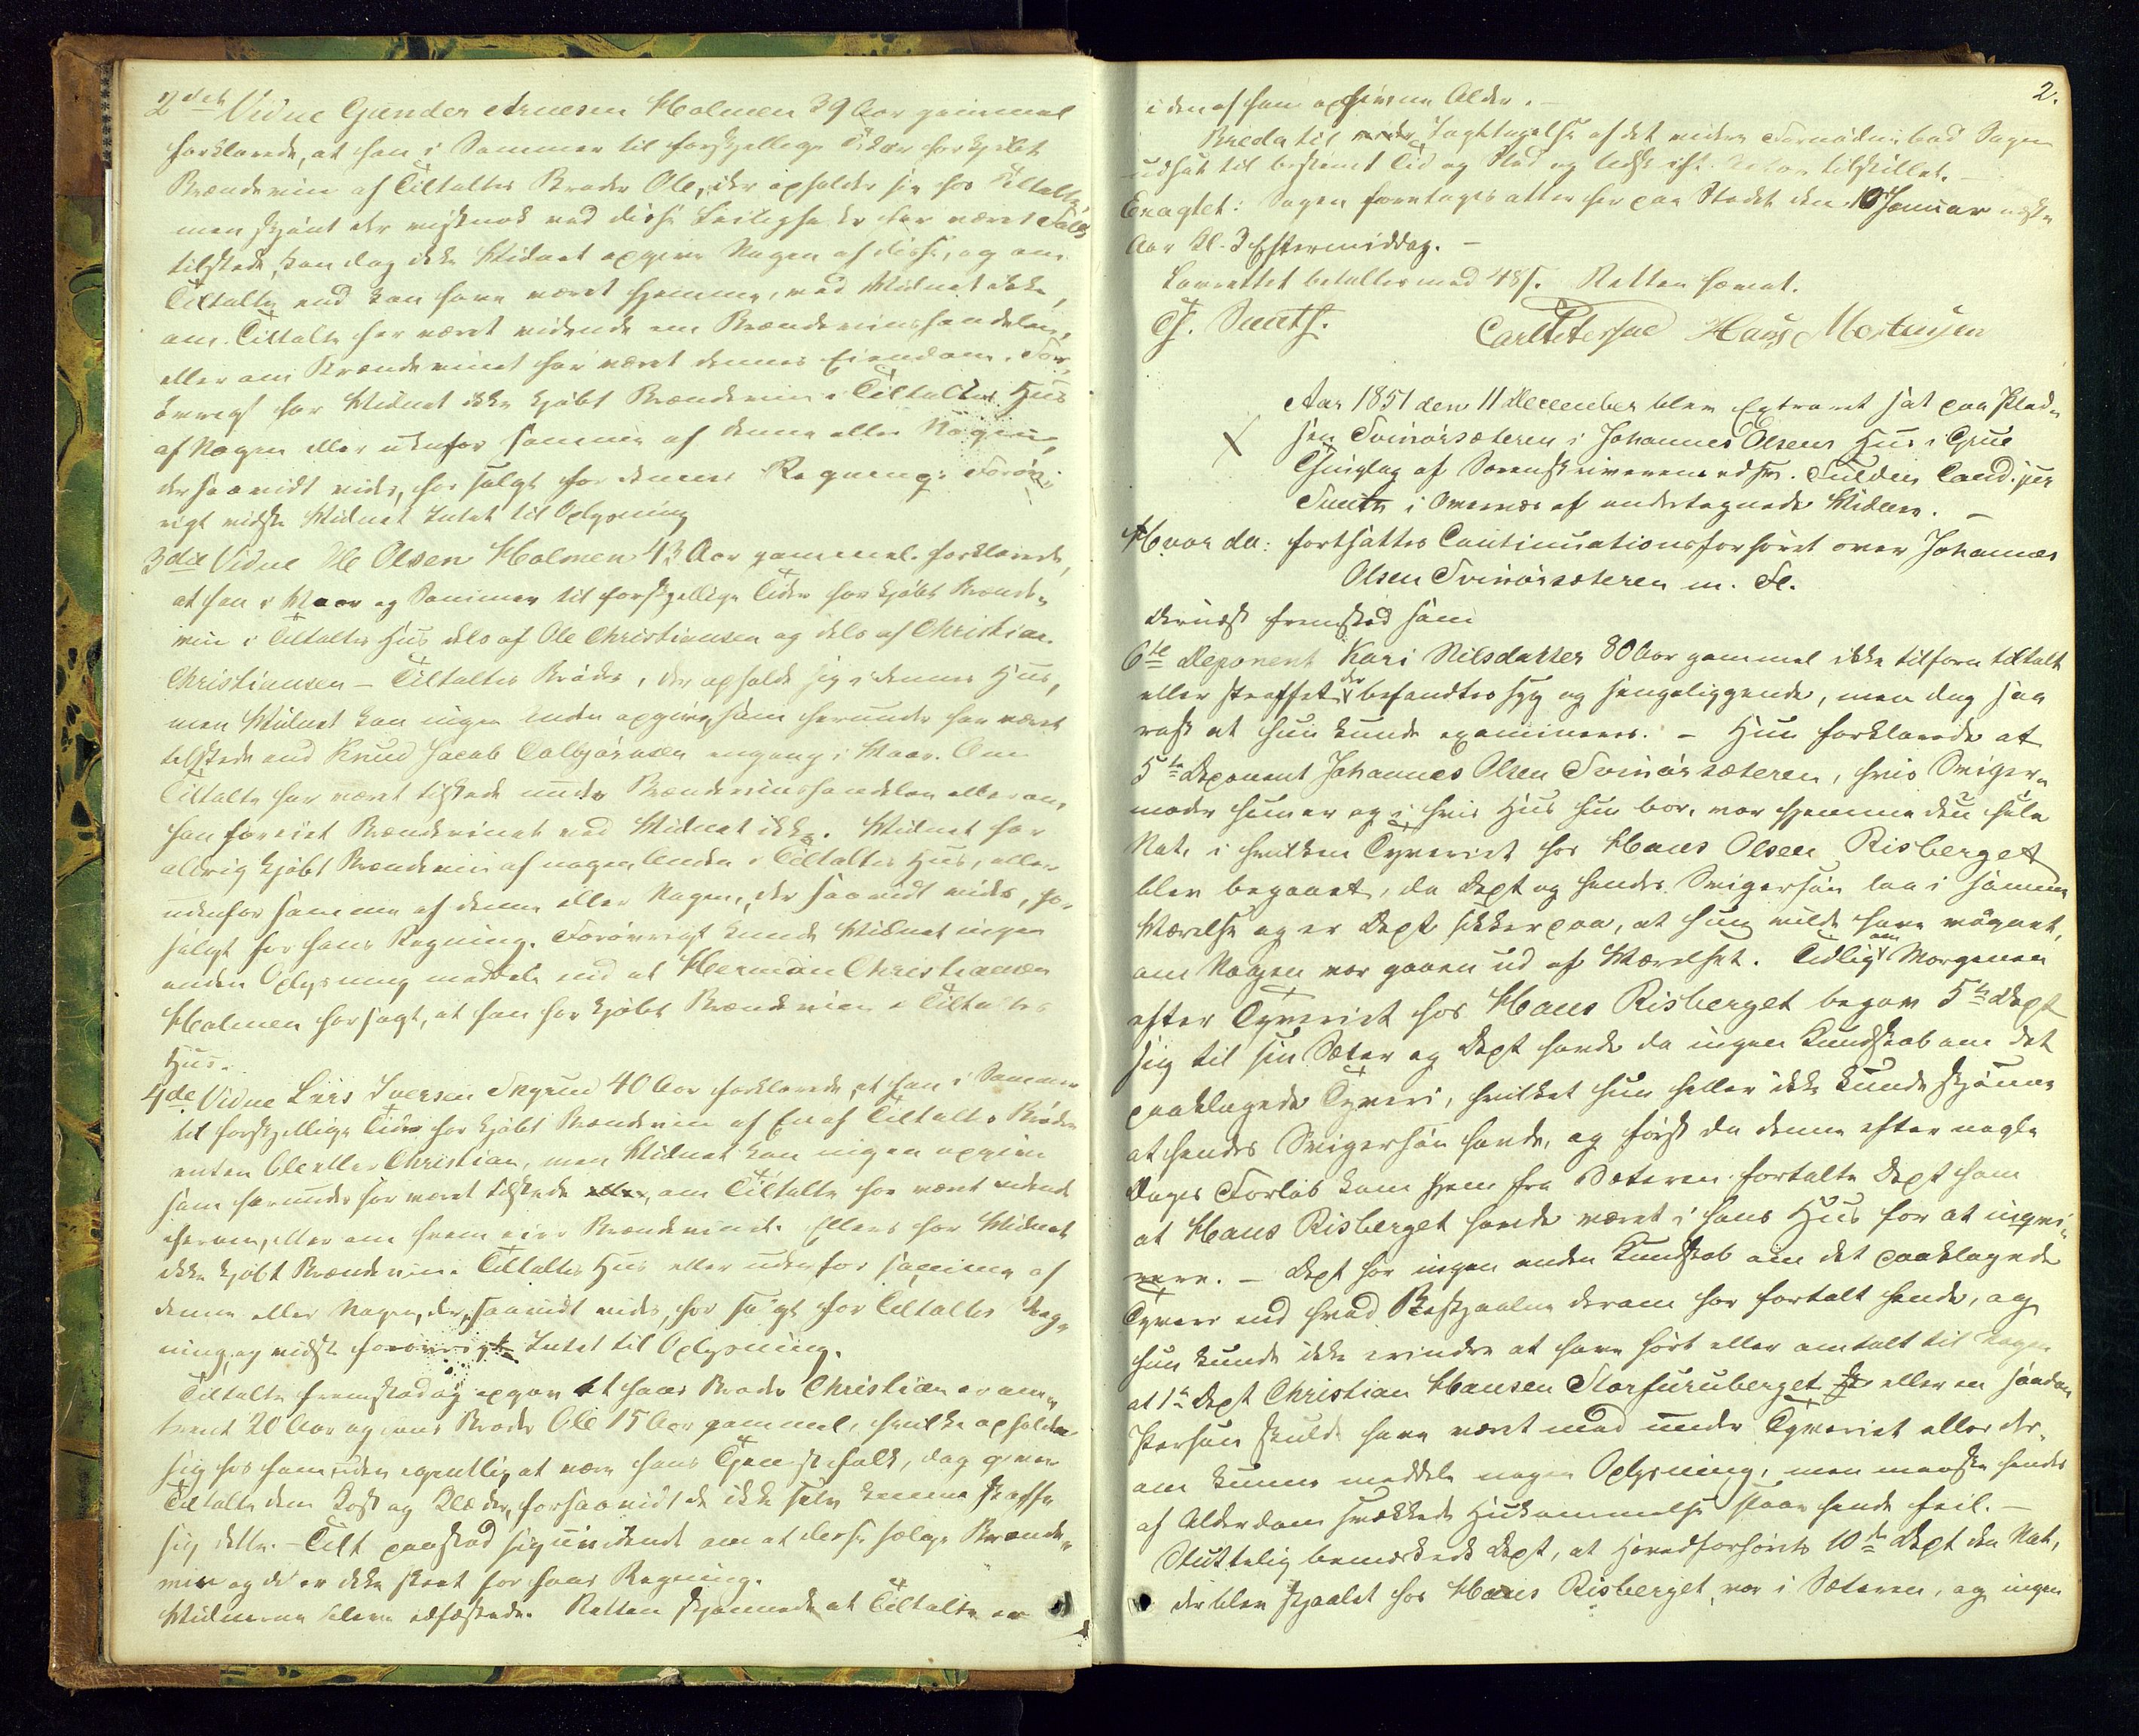 2det Vidne Gunder Arnesen Holmen 39 Aar gammel
forklarede, at han i Sommer til forskjellige Tider har kjøbt
Brændeviin af Tiltaltes Broder Ole, der opholder sig hos Tiltalte,
men skjønt der vistnok ved disse Leiligheder har været Folk
tilstede, kan dog ikke Vidnet opgive Nogen af disse, og om
Tiltalte end kan have været hjemme, ved Vidnet ikke,
om Tiltalte har været vidende om Brændeviinshandelen,
eller om Brændevinet har været dennes Eiendom. For-
øvrigt har Vidnet ikke kjøbt Brændeviin i Tiltaltes Huus
af Nogen eller udenfor samme af denne eller Nogen,
der saavidt vides, har solgt for dennes Regning. Forøv-
rigt vidste Vidnet Intet til Oplysning
3die Vidne Ole Olsen Holmen 43 Aar gammel forklarede,
at han i Vaar og Sommer til forskjellige Tider har kjøbt Brænde-
viin i Tiltaltes Huus dels af Ole Christiansen og dels af Christian
Christiansen – Tiltaltes Brødre, der opholde sig i dennes Huus,
men Vidnet kan ingen Anden opgive, som herunder har været
tilstede end Knud Jacob Colbjørnsen engang i Vaar. Om
Tiltalte har været tilstede under Brændeviinshandelen eller om
han har eiet Brændevinet ved Vidnet ikke. Vidnet har
aldrig kjøbt Brændeviin af nogen Anden i Tiltaltes Huus, eller
udenfor samme af denne eller Nogen, der saavidt vides, har
solgt for hans Regning. Forøvrigt kunde Vidnet ingen
anden Oplysning meddele end at Herman Christiansen
Holmen har sagt, at han har kjøbt Brændeviin i Tiltaltes
Huus.
4de Vidne Lars Iversen Skyrud 40 Aar forklarede, at han i Sommer
til forskjellige Tider har kjøbt Brændeviin af En af Tiltaltes Brødre
enten Ole eller Christian, men Vidnet kan ingen opgive
som herunder har været tilstede eller, om Tiltalte har været vidende
herom, eller om hvem eier Brændevinet. Ellers har Vidnet
ikke kjøbt Brændeviin i Tiltaltes Huus eller udenfor samme af
denne eller Nogen, der, saavidt vides, har solgt for Tiltaltes Reg-
ning, og vidste forøvrigt Intet til Oplysning.
Tiltalte fremstod og opgav at hans Broder Christian er om-
trent 20 Aar og hans Broder Ole 15 Aar gammel, hvilke opholde
sig hos ham, uden egentlig at være hans Tjenestefolk, dog giver
Tiltalte dem Kost og Klæder, forsaavidt de ikke selv kunne skaffe
sig dette. – Tilt paastod sig uvidende om at disse solgte Brænde-
viin og det er ikke skeet for hans Regning.
Vidnerne bleve edfæstede. Retten skjønnede at Tiltalte er
2.
i den af ham opgivne Alder. –
Breda til Iagttagelse af det videre Fornødne bad Sagen
udsat til bestemt Tid og Sted og Udskrift tilstillet. –
Eragtet: Sagen foretages atter her paa Stedet den 10 Januar næste
Aar Kl. 3 Eftermiddag. –
Lavrettet betaltes med 48 s. Retten hævet.
Smith. Carl Petersen Hans Mortensen
Aar 1851 den 11 December blev Extraret sat paa Plad-
sen Svinørsæteren i Johannes Olsens Huus i Grue
Thinglag af Sorenskriverens edsv. Fuldm. Cand. jur
Smith i Overvær af undertegnede Vidner. –
Hvor da: fortsattes Continuationsforhøret over Johannes
Olsen Svinørsæteren m. Fl.
Dernæst fremstod som
6te Deponent Kari Nilsdatter 80 Aar gammel ikke tilforn tiltalt
eller straffet, der befandtes syg og sengeliggende, men dog saa
rask at hun kunde examineres. – Hun forklarede at
5te Deponent Johannes Olsen Svinørsæteren, hvis Sviger-
moder hun er og i hvis Huus hun bor, var hjemme den hele
Nat, i hvilken Tyveriet hos Hans Olsen Risberget
blev begaaet, da Dept og hendes Svigersøn laa i samme
Værelse og er Dept sikker paa, at hun vilde have vaagnet,
om Nogen var gaaen ud af Værelset. Tidlig om Morgenen
efter Tyveriet hos Hans Risberget begav 5te Dept
sig til sin Sæter og Dept havde da ingen Kundskab om det
paaklagede Tyveri, hvilket hun heller ikke kunde skjønne
at hendes Svigersøn havde, og først da denne efter nogle
Dages Forløb kom hjem fra Sæteren fortalte Dept ham
at Hans Risberget havde været i hans Huus for at inqvi-
rere. – Dept har ingen anden Kundskab om det paaklagede
Tyveri end hvad Bestjaalne derom har fortalt hende, og
hun kunde ikke erindre at have hørt eller omtalt til Nogen
at 1ste Dept Christian Hansen Storfuruberget eller en saadan
Person skulde have været med under Tyveriet eller der-
om kunne meddele nogen Oplysning, men maaske hendes
af Alderdom svækkede Hukommelse slaar hende feil. –
Sluttelig bemærkede Dept, at Hovedforhørets 10de Dept den Nat,
der blev stjaalet hos Hans Risberget, var i Sæteren, og ingen